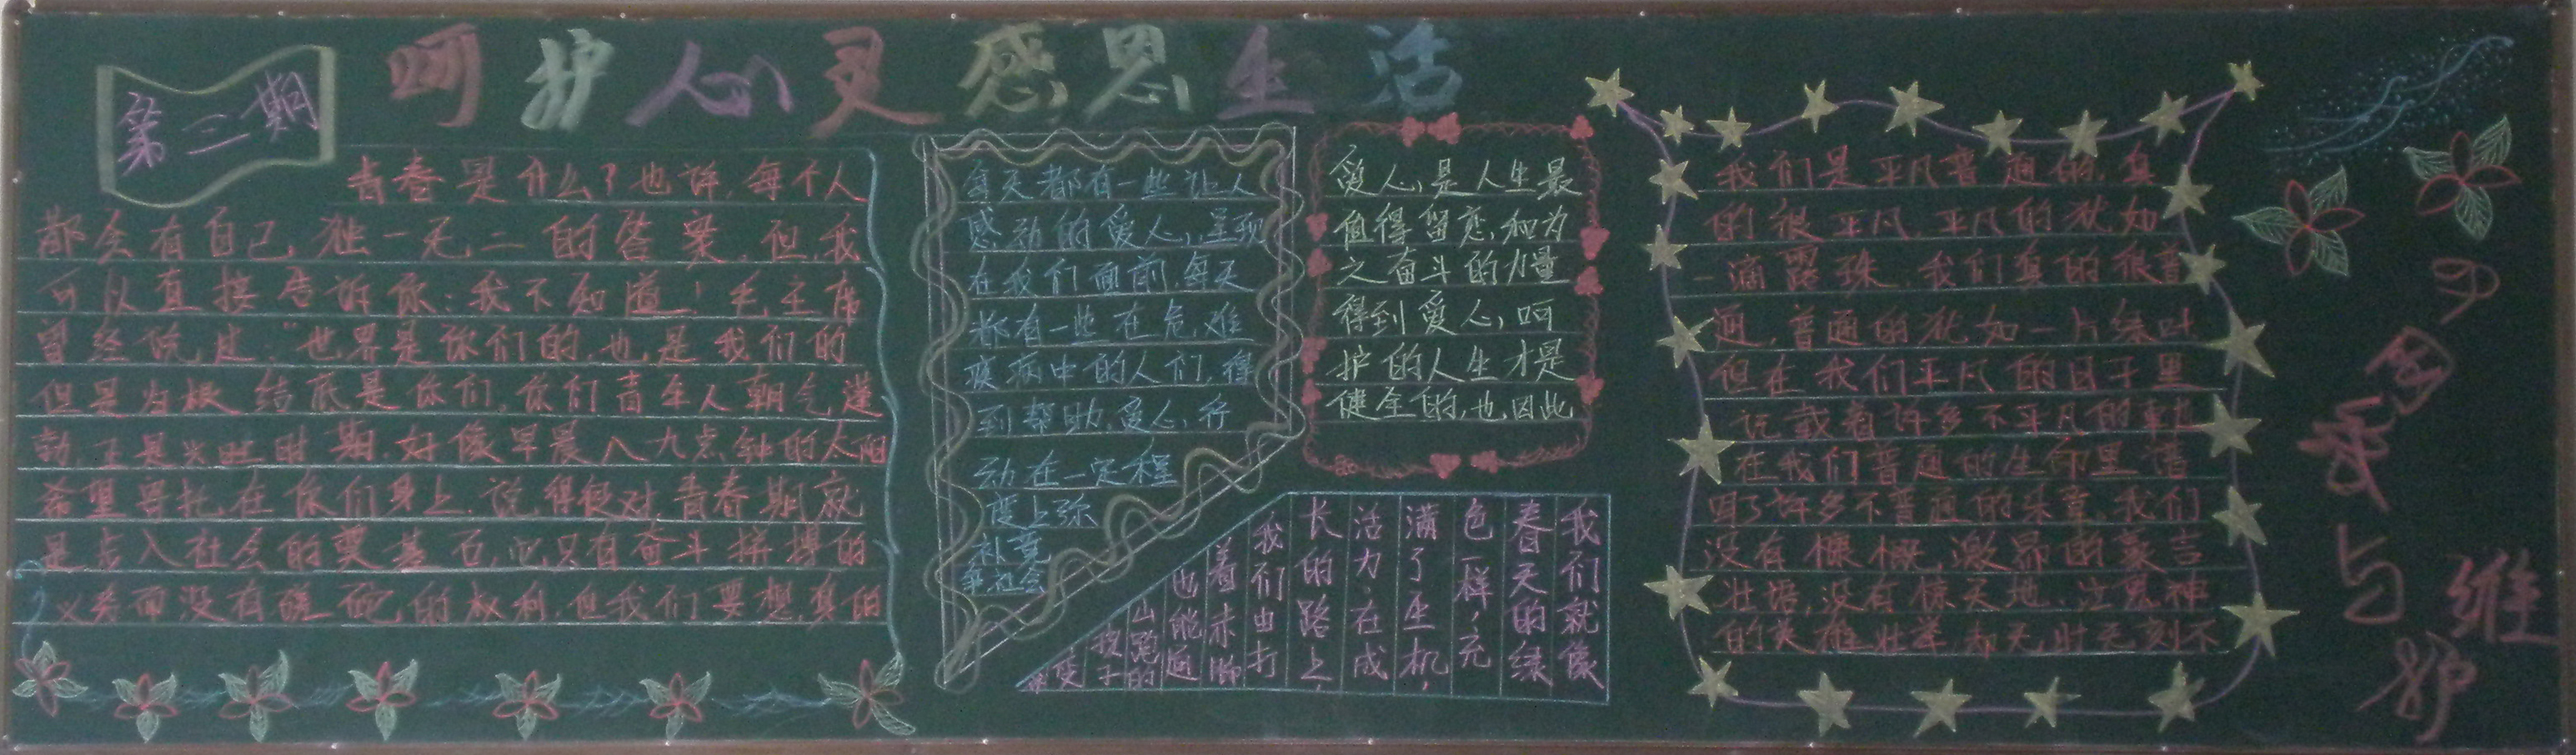 第三期
呵护心灵 感恩生活
青春是什么？也许，每个人
都会有自己独一无二的答案，但我
可以直接告诉你：我不知道！毛主席
曾经说过：“世界是你们的，也是我们的
但是归根结底是你们，你们青年人朝气蓬
勃，正是兴旺时期，好像早晨八九点钟的太阳
希望寄托在你们身上．说得很对，青春期就
是步入社会的奠基石，它只有奋斗拼搏的
义务而没有蹉砣的权利，但我们要想真的
每天都有一些让人
感动的爱心，呈现
在我们面前，每天
都有一些在危难
疾病中的人们，得
到帮助，爱心，行
动在一定程
度上弥
补竟
争社会
爱心，是人生最
值得留恋，和为
之奋斗的力量
得到爱心，呵
护的人生才是
健全的，也因此
我们就像
春天的绿
色一样，充
满了生机，
活力，在成
长的路上，
我们由打
着赤脚
也能通
山跑的
孩子
变
我们是平凡普通的，真
的很平凡．平凡的犹如
一滴露珠．我们真的很普
通，普通的犹如一片绿叶
但在我们平凡的日子里
记载着许多不平凡的事迹
在我们普通的生命里谱
写了许多不普通的乐章，我们
没有慷慨，激昂的豪言
壮语，没有惊天地，泣鬼神
的英雄壮举，却无时无刻不
与
维
护